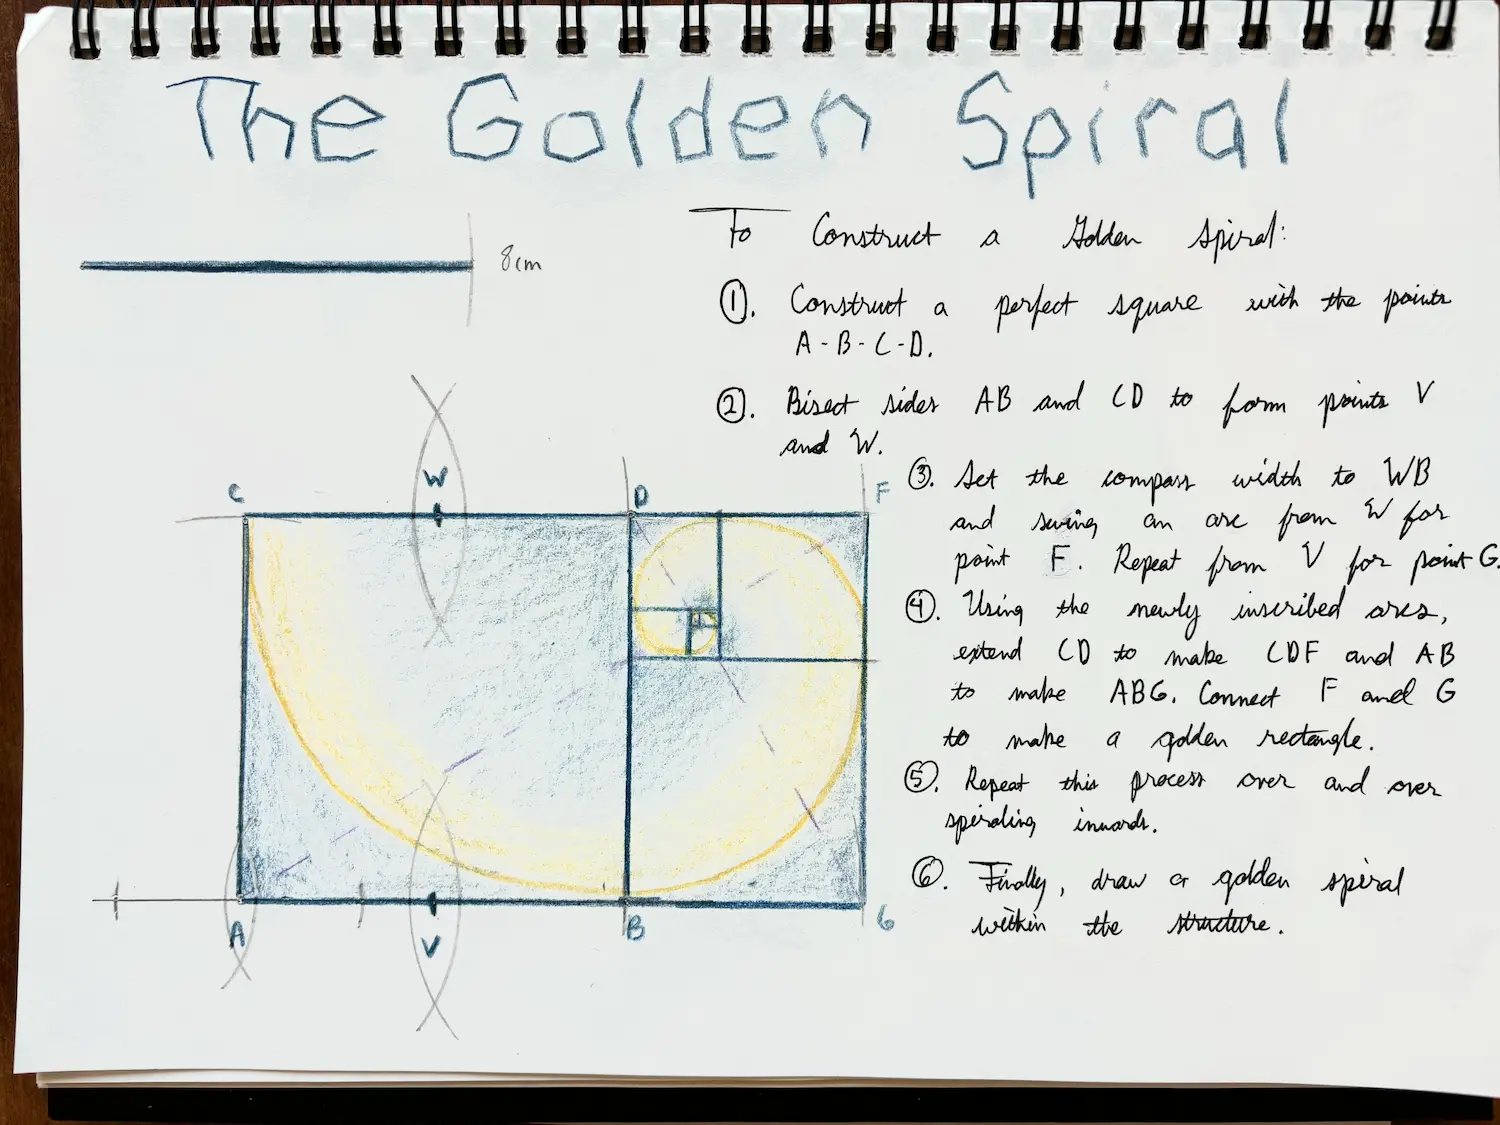 The Golden Spiral
8cm
To Construct a Golden Spiral:
①. Construct a perfect square with the points
A-B-C-D.
②. Bisect sides AB and CD to form points V
and W.
③. Set the compass width to WB
and swing an arc from W for
point F. Repeat from V for point G.
④. Using the newly inscribed arcs,
extend CD to make CDF and AB
to make ABG. Connect F and G
to make a golden rectangle.
⑤. Repeat this process over and over
spiraling inwards.
⑥. Finally, draw a golden spiral
within the structure.
C
W
D
F
A
V
B
G